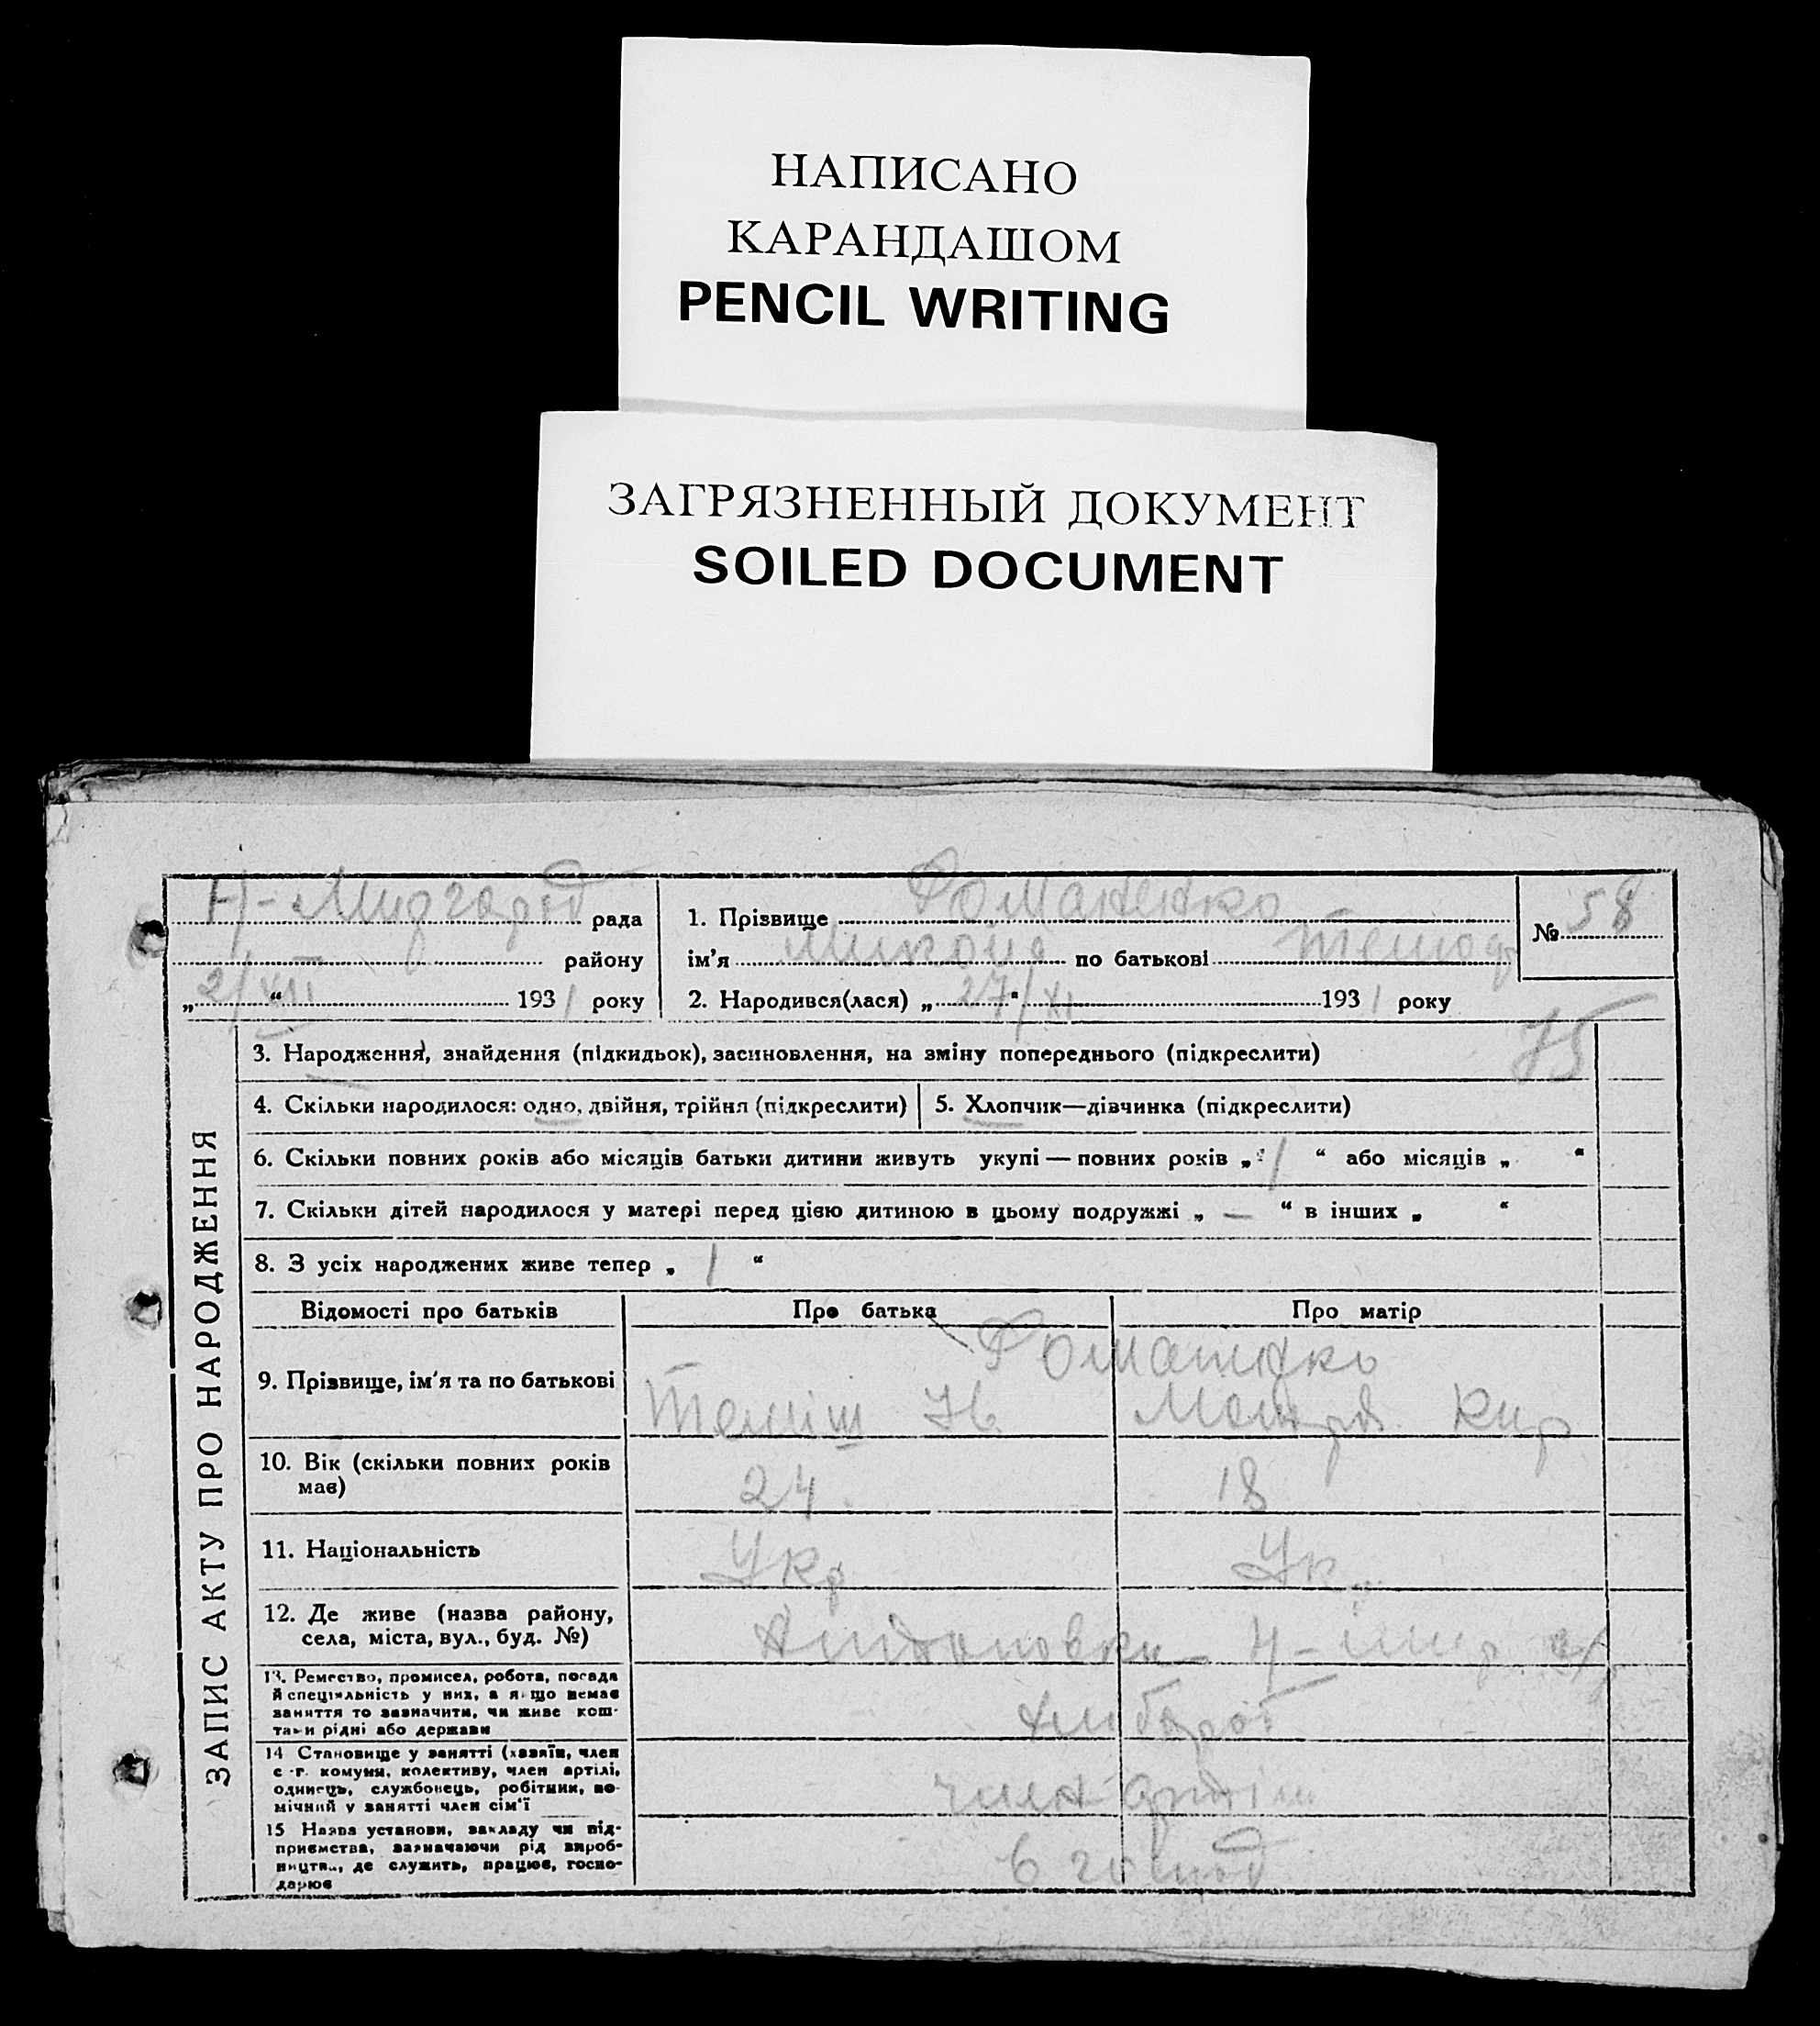 НАПИСАНО
КАРАНДАШОМ
PENCIL WRITING
ЗАГРЯЗНЕННЫЙ ДОКУМЕНТ
SOILED DOCUMENT
ЗАПИС АКТУ ПРО НАРОДЖЕННЯ
Н-Миргород рада
району
„2/XII“ 1931 року
1. Прізвище Романенко
ім'я Микола по батькові
2. Народився(лася) „27/XI“ 1931 року
№ 58
75
3. Народження, знайдення (підкидьок), засиновлення, на зміну попереднього (підкреслити)
4. Скільки народилося: одно, двійня, трійня (підкреслити)
5. Хлопчик—дівчинка (підкреслити)
6. Скільки повних років або місяців батьки дитини живуть укупі — повних років „1“ або місяців „ “
7. Скільки дітей народилося у матері перед цією дитиною в цьому подружжі „—“ в інших „ “
8. З усіх народжених живе тепер „1“
Відомості про батьків
Про батька
Про матір
9. Прізвище, ім'я та по батькові
Романенко
Кир
10. Вік (скільки повних років
має)
24
18
11. Національність
Укр
Ук
12. Де живе (назва району,
села, міста, вул., буд. №)
Н-Мир
13. Ремество, промисел, робота, посада
й спеціяльність у них, а якщо немає
заняття то зазначити, чи живе кош-
тами рідні або держави
хлібороб
14 Становище у занятті (хазяїн, член
с.-г. комуни, колективу, член артілі,
одинець, службовець, робітник, по-
мічний у занятті член сім'ї
член артіли
15 Назва установи, закладу чи під-
приємства, зазначаючи рід вироб-
ництва, де служить, працює, госпо-
дарює